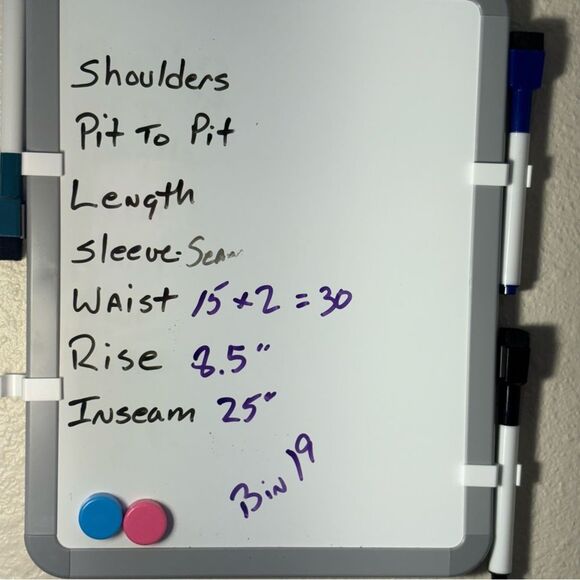 Shoulders
Pit To Pit
Length
Sleeve: Seam
Waist 15 x 2 = 30
Rise 8.5"
Inseam 25"
Bin 19